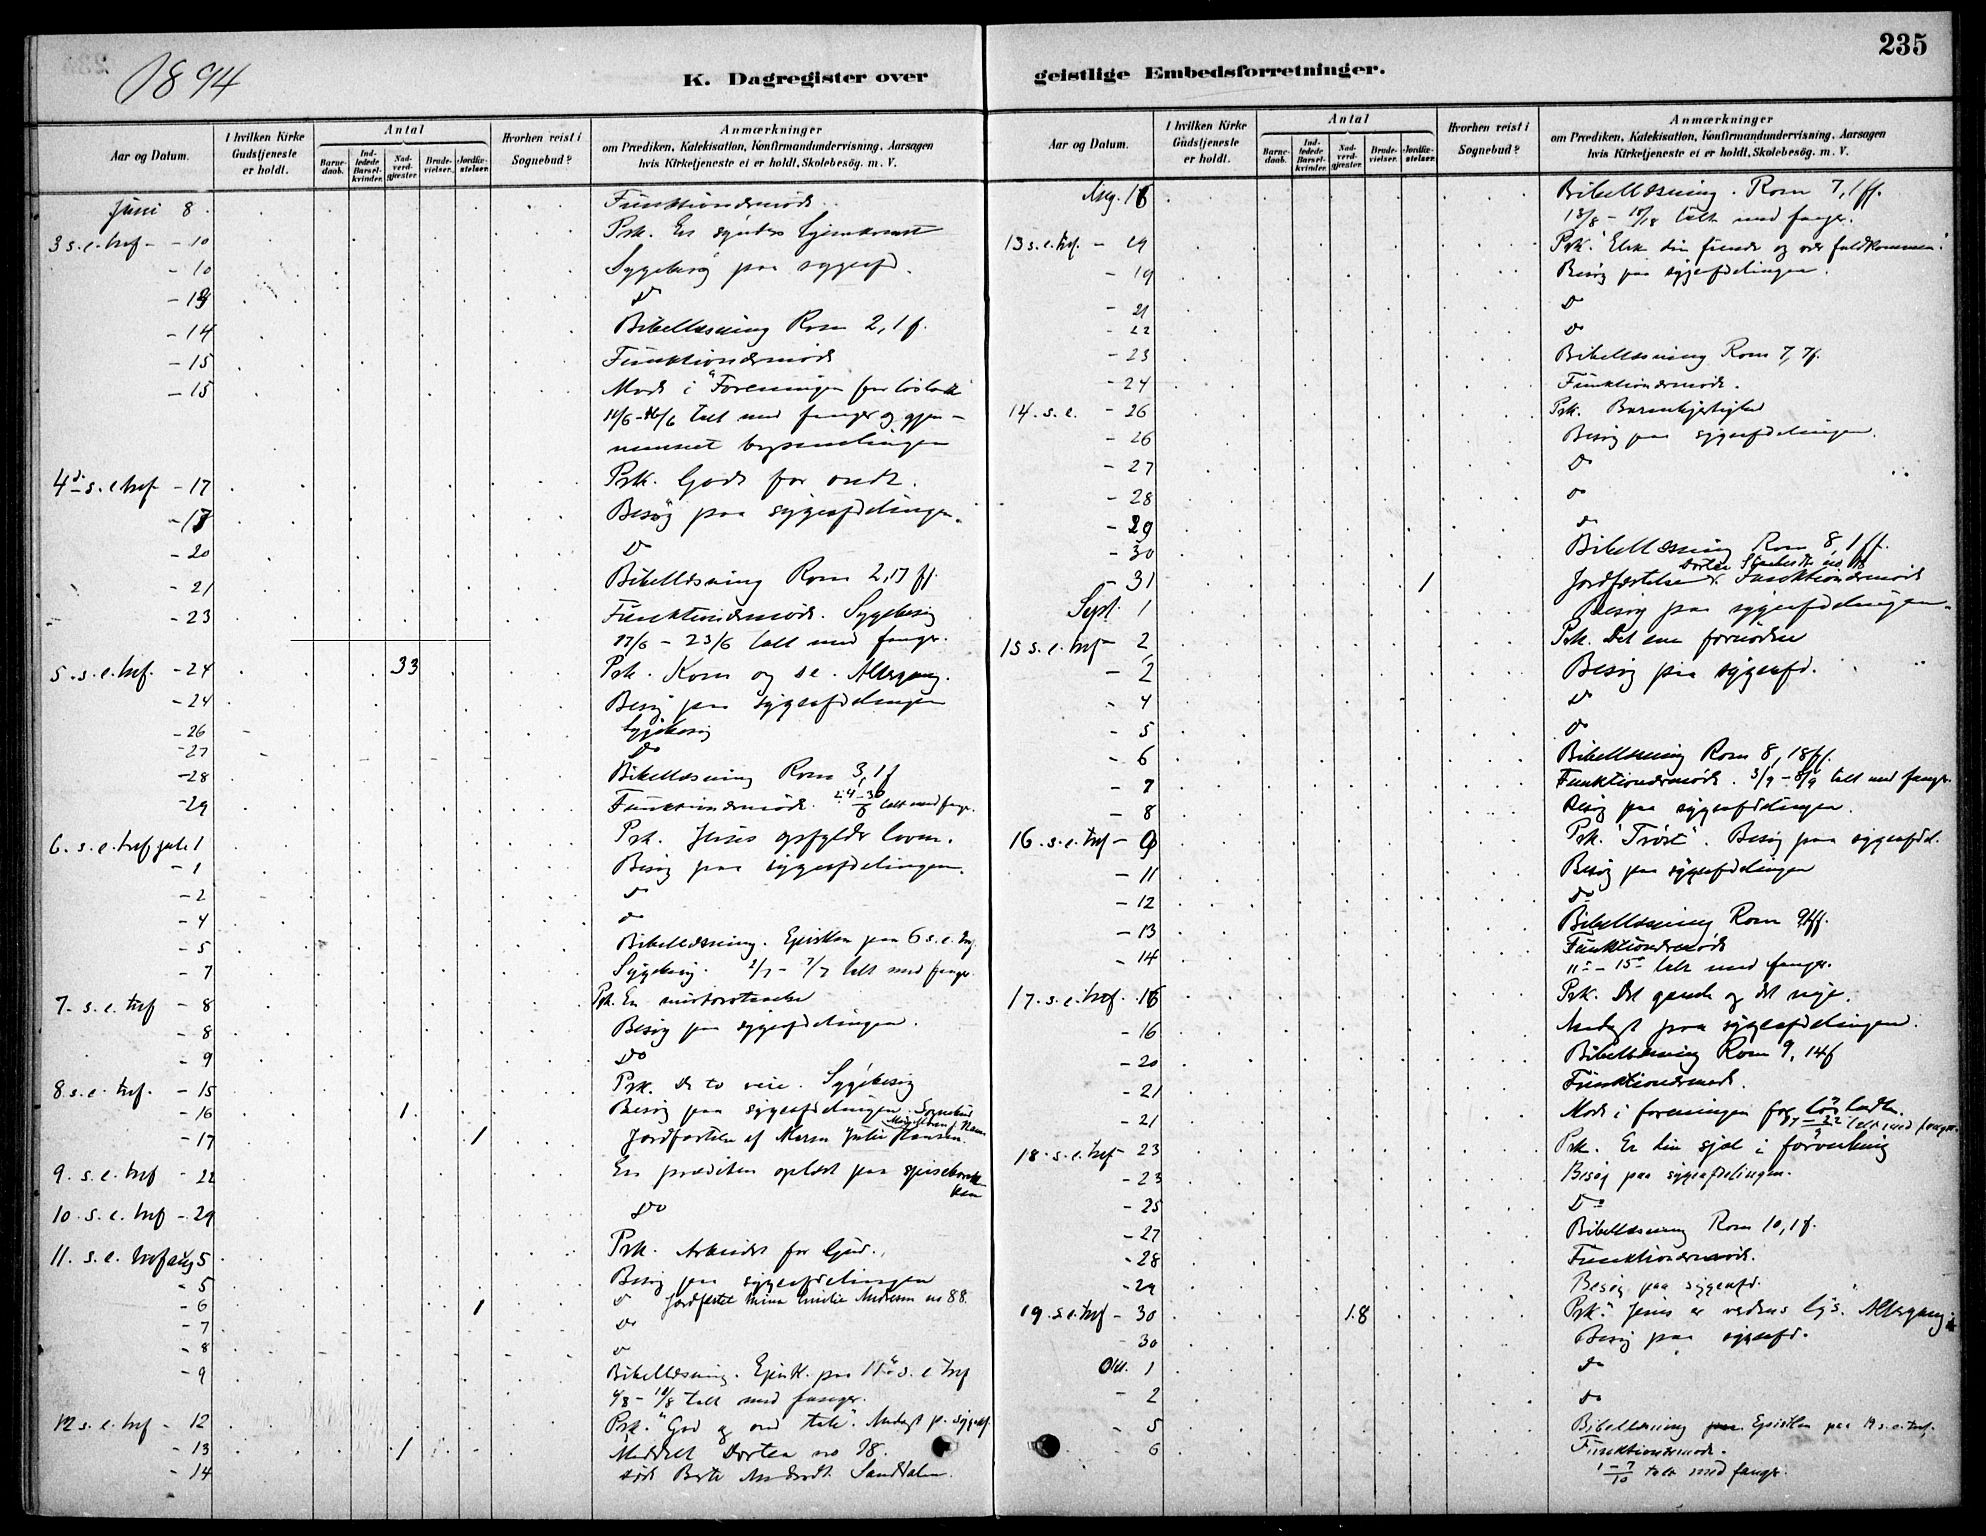 235
1894
K. Dagregister over geistlige Embedsforretninger.
Aar og Datum.
I hvilken Kirke Gudstjeneste er holdt.
Antal
Barne-daab.
Ind-ledede Barsel-kvinder.
Nad-verd-gjæster.
Brude-vielser.
Jordfæ-stelser.
Hvorhen reist i Sognebud?
Anmærkninger
om Prædiken, Katekisation, Konfirmandundervisning, Aarsagen
hvis Kirketjeneste ei er holdt, Skolebesög. m. V.
Juni 8 Funktionærmöde.
3 s. e. tref. - 10 Prk. En synders hjemkomst
- 10 Sygebesög paa sygeafd.
- 13 Do
- 14 Bibellæsning Rom 2, 1 f.
- 15 Funktionærmöde
- 15 Möde i "Foreningen for löslatte
11/6 - 16/6 talt med fanger og gjen-
nemseet
4de s. e. tref - 17 Prk. Godt for ondt.
- 17 Besög paa sygeafdelingen.
- 20 Do
- 21 Bibellæsning Rom 2, 17 ff.
- 23 Funktionærmöde. Sygebesög
17/6 - 23/6 talt med fanger.
5. s. e. tref. - 24 33 Prk. Kom og se. Altergang.
- 24 Besög paa sygeafdelingen
- 26 Sygebesög
- 27 Do
- 28 Bibellæsning Rom 3, 1 f
- 29 Funktionærmöde. 24-30/6 talt med fanger.
6. s. e. tref juli 1 Prk. Jesus opfylder loven.
- 1 Besög paa sygeafdelingen.
- 2 Do
- 4 Do
- 5 Bibellæsning. Epistlen paa 6 s. e. tref
- 7 Sygebesög. 2/7 - 7/7 talt med fanger.
7. s. e. tref - 8 Prk. En
- 8 Besög paa sygeafdelingen.
- 9 Do
8 s. e. tref. - 15 Prk. De to veie. Sygebesög
- 16 1 Besög paa sygeafdelingen. Sognebud
- 17 1 Jordfæstelse af Maren Julie Hansen.
9. s. e. tref - 22 En prædiken oplæst paa
10. s. e. tref - 29 Do
11. s. e. tref aug 5 Prk. Arbeidet for Gud.
- 5 Besög paa sygeafdelingen
- 6 1 Do Jordfæstet Mina Emilie Andersen no 88.
- 7 Do
- 8 Do
- 9 Bibellæsning. Epistl. paa 11te s. e tref
4/8 - 10/8 talt med fanger.
12 s. e. tref - 12 Prk. "God og ond tale". Andagt p. sygeafd.
- 13 1 Meddelt Dorthea no 98.
- 14
K. Dagregister over geistlige Embedsforretninger.
Aar og Datum.
I hvilken Kirke Gudstjeneste er holdt.
Antal
Barne-daab.
Ind-ledede Barsel-kvinder.
Nad-verd-gjæster.
Brude-vielser.
Jordfæ-stelser.
Hvorhen reist i Sognebud?
Anmærkninger
om Prædiken, Katekisation, Konfirmandundervisning, Aarsagen
hvis Kirketjeneste ei er holdt, Skolebesög. m. V.
Aug. 16 Bibellæsning. Rom 7, 1 ff.
13/8 - 18/8 talt med fanger.
13 s. e. tref. - 19 Prk. "Elsk din fiende og vær fuldkommen."
- 19 Besög paa sygeafdelingen.
- 21 Do
- 22 Do
- 23 Bibellæsning Rom 7, 7 f.
- 24 Funktionærmöde.
14. s. e. - 26 Prk. Barmhjertighed
- 26 Besög paa sygeafdelingen.
- 27 Do
- 28 Do
- 29 Do
- 30 Bibellæsning Rom 8, 1 ff.
- 31 1 Jordfæstelse Funktionærmöde
Sept. 1 Besög paa sygeafdelingen.
15 s. e. tref - 2 Prk. Det ene fornödne
- 2 Besög paa sygeafd.
- 4 Do
- 5 Do
- 6 Bibellæsning Rom 8, 18 ff.
- 7 Funktionærmöde. 3/9 - 8/9 talt med fanger.
- 8 Besög paa sygeafdelingen.
16. s. e. tref - 9 Prk. "Tröst". Besög paa sygeafdel.
- 11 Besög paa sygeafdelingen
- 12 Do
- 13 Bibellæsning Rom 9, 1 ff.
- 14 Funktionærmöde
11te - 15de talt med fanger.
17. s. e. tref. 16 Prk. Det gamle og det nye.
- 16 Andagt paa sygeafdelingen.
- 20 Bibellæsning Rom 9, 14 f
- 21 Funktionærmöde.
- 21 Möde i foreningen for löslatte.
talt med fanger.
18. s. e. tref - 23 Prk. Er din sjæl i forvirring
- 23 Besög paa sygeafdelingen.
- 25 Do
- 27 Bibellæsning Rom 10, 1 f.
- 28 Funktionærmöde.
- 29 Besög paa sygeafd.
19. s. e. tref - 30 18 Prk. Jesus er verdens lys. Altergang
- 30 Besög paa sygeafd.
Okt. 1 Do
- 2 Do
- 5 Bibellæsning Epistlen paa 19 s. e. tref.
- 6 Funktionærmöde.
1-7/10 talt med fanger.